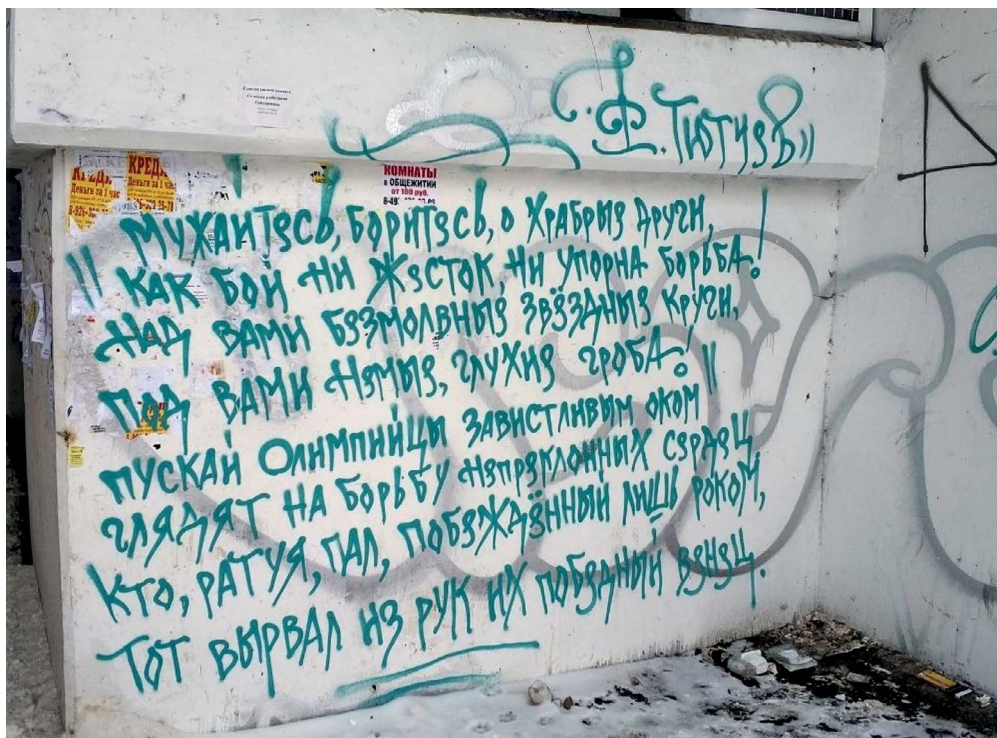 Ф. Тютчев
КРЕДИ
Деньги за 1 час
КРЕДИ
Деньги за 1 час
КОМНАТЫ
в ОБЩЕЖИТИИ
от 100 руб.
"Мужайтесь, боритесь, о храбрые други,
Как бой ни жесток, ни упорна борьба!
Над вами безмолвные звёздные круги,
Под вами немые, глухие гроба!"
Пускай Олимпийцы завистливым оком
Глядят на борьбу непреклонных сердец,
Кто, ратуя, пал, побеждённый лишь роком,
Тот вырвал из рук их победный венец.